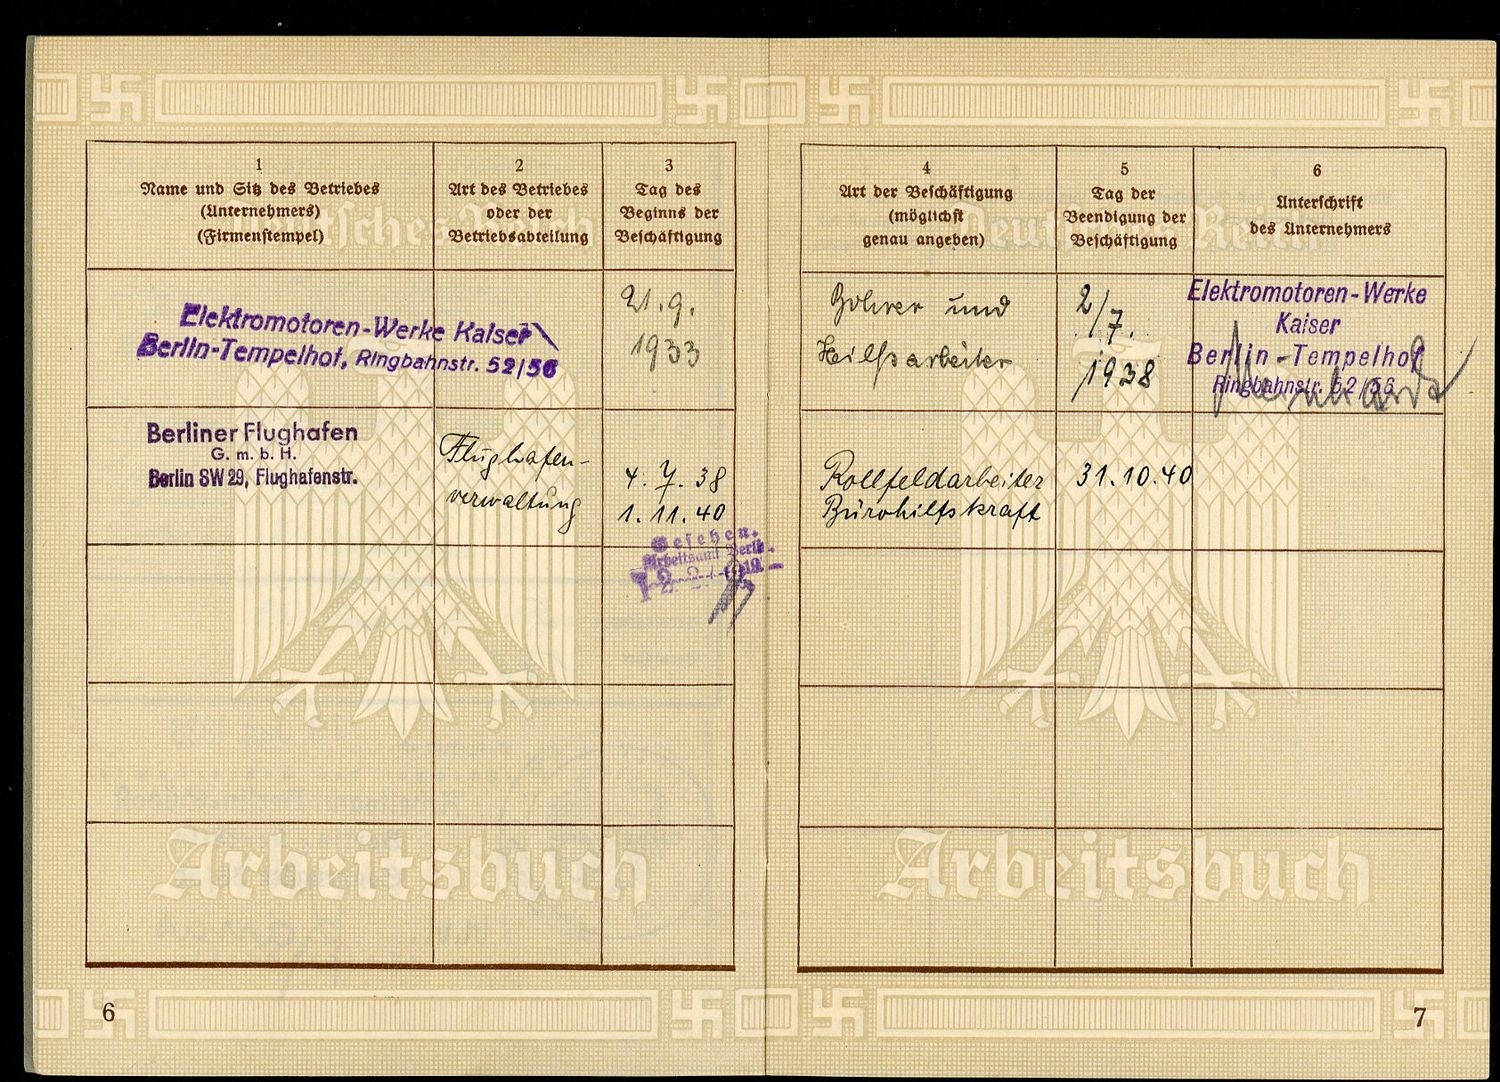 1
Name und Sitz des Betriebes
(Unternehmers)
(Firmenstempel)
2
Art des Betriebes
oder der
Betriebsabteilung
3
Tag des
Beginns der
Beschäftigung
Elektromotoren-Werke Kaiser
Berlin-Tempelhof, Ringbahnstr. 52/56
21.9.
1933
Berliner Flughafen
G. m. b. H.
Berlin SW 29, Flughafenstr.
Flughafen-
verwaltung
4. 7. 38
1. 11. 40
Gesehen.
Arbeitsamt Berlin
Deutsches Reich
Arbeitsbuch
6
4
Art der Beschäftigung
(möglichst
genau angeben)
5
Tag der
Beendigung der
Beschäftigung
6
Unterschrift
des Unternehmers
Bohrer und
Hilfsarbeiter
2/7.
1938
Elektromotoren-Werke
Kaiser
Berlin-Tempelhof
Ringbahnstr. 52/56
Rollfeldarbeiter
Bürohilfskraft
31.10.40
Deutsches Reich
Arbeitsbuch
7